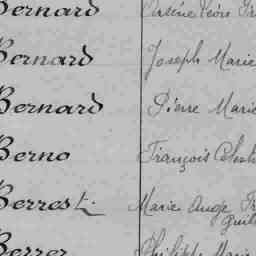 Bernard Arsène Léon
Bernard Joseph Marie
Bernard Pierre Marie
Berno François
Berrest Marie Ange
Berrer Philippe Marie